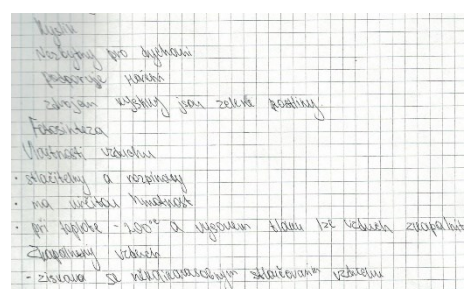 Kyslík
Nezbytný pro dýchaní
podporuje hoření
zdrojem kyslíky jsou zelené rostliny.
Fotosinteza
Vlastnosti vzduchu
· stlačitelny a rozpínavy
· ma určitou hmotnost
· při teplote -200°C a vysovem tlamu lze vzduch zkapalnit
Zkapalněny vzduch
- získava se několikanasobnym stlačovanim vzduchu